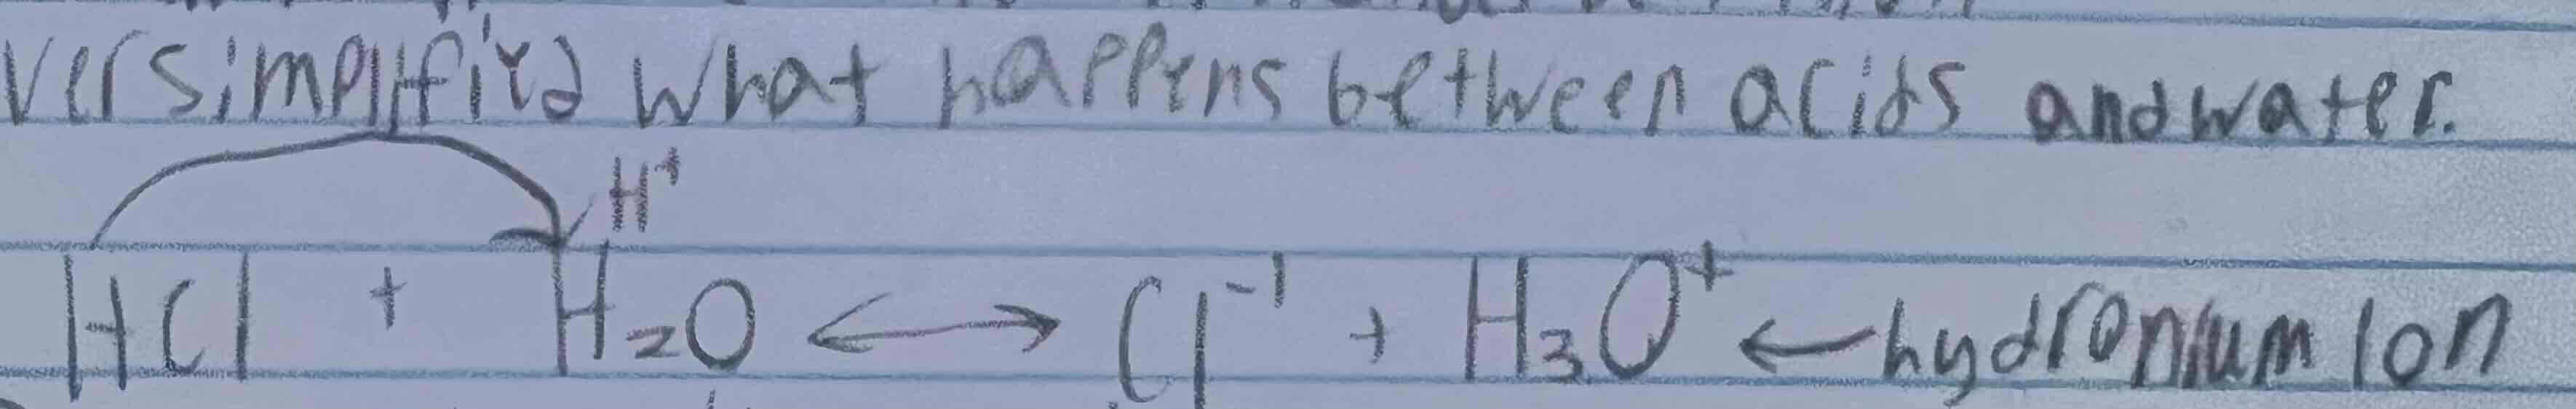 versimplified what happens between acids and water.
H⁺
HCl + H₂O ⟷ Cl⁻¹ + H₃O⁺ ← hydronium ion